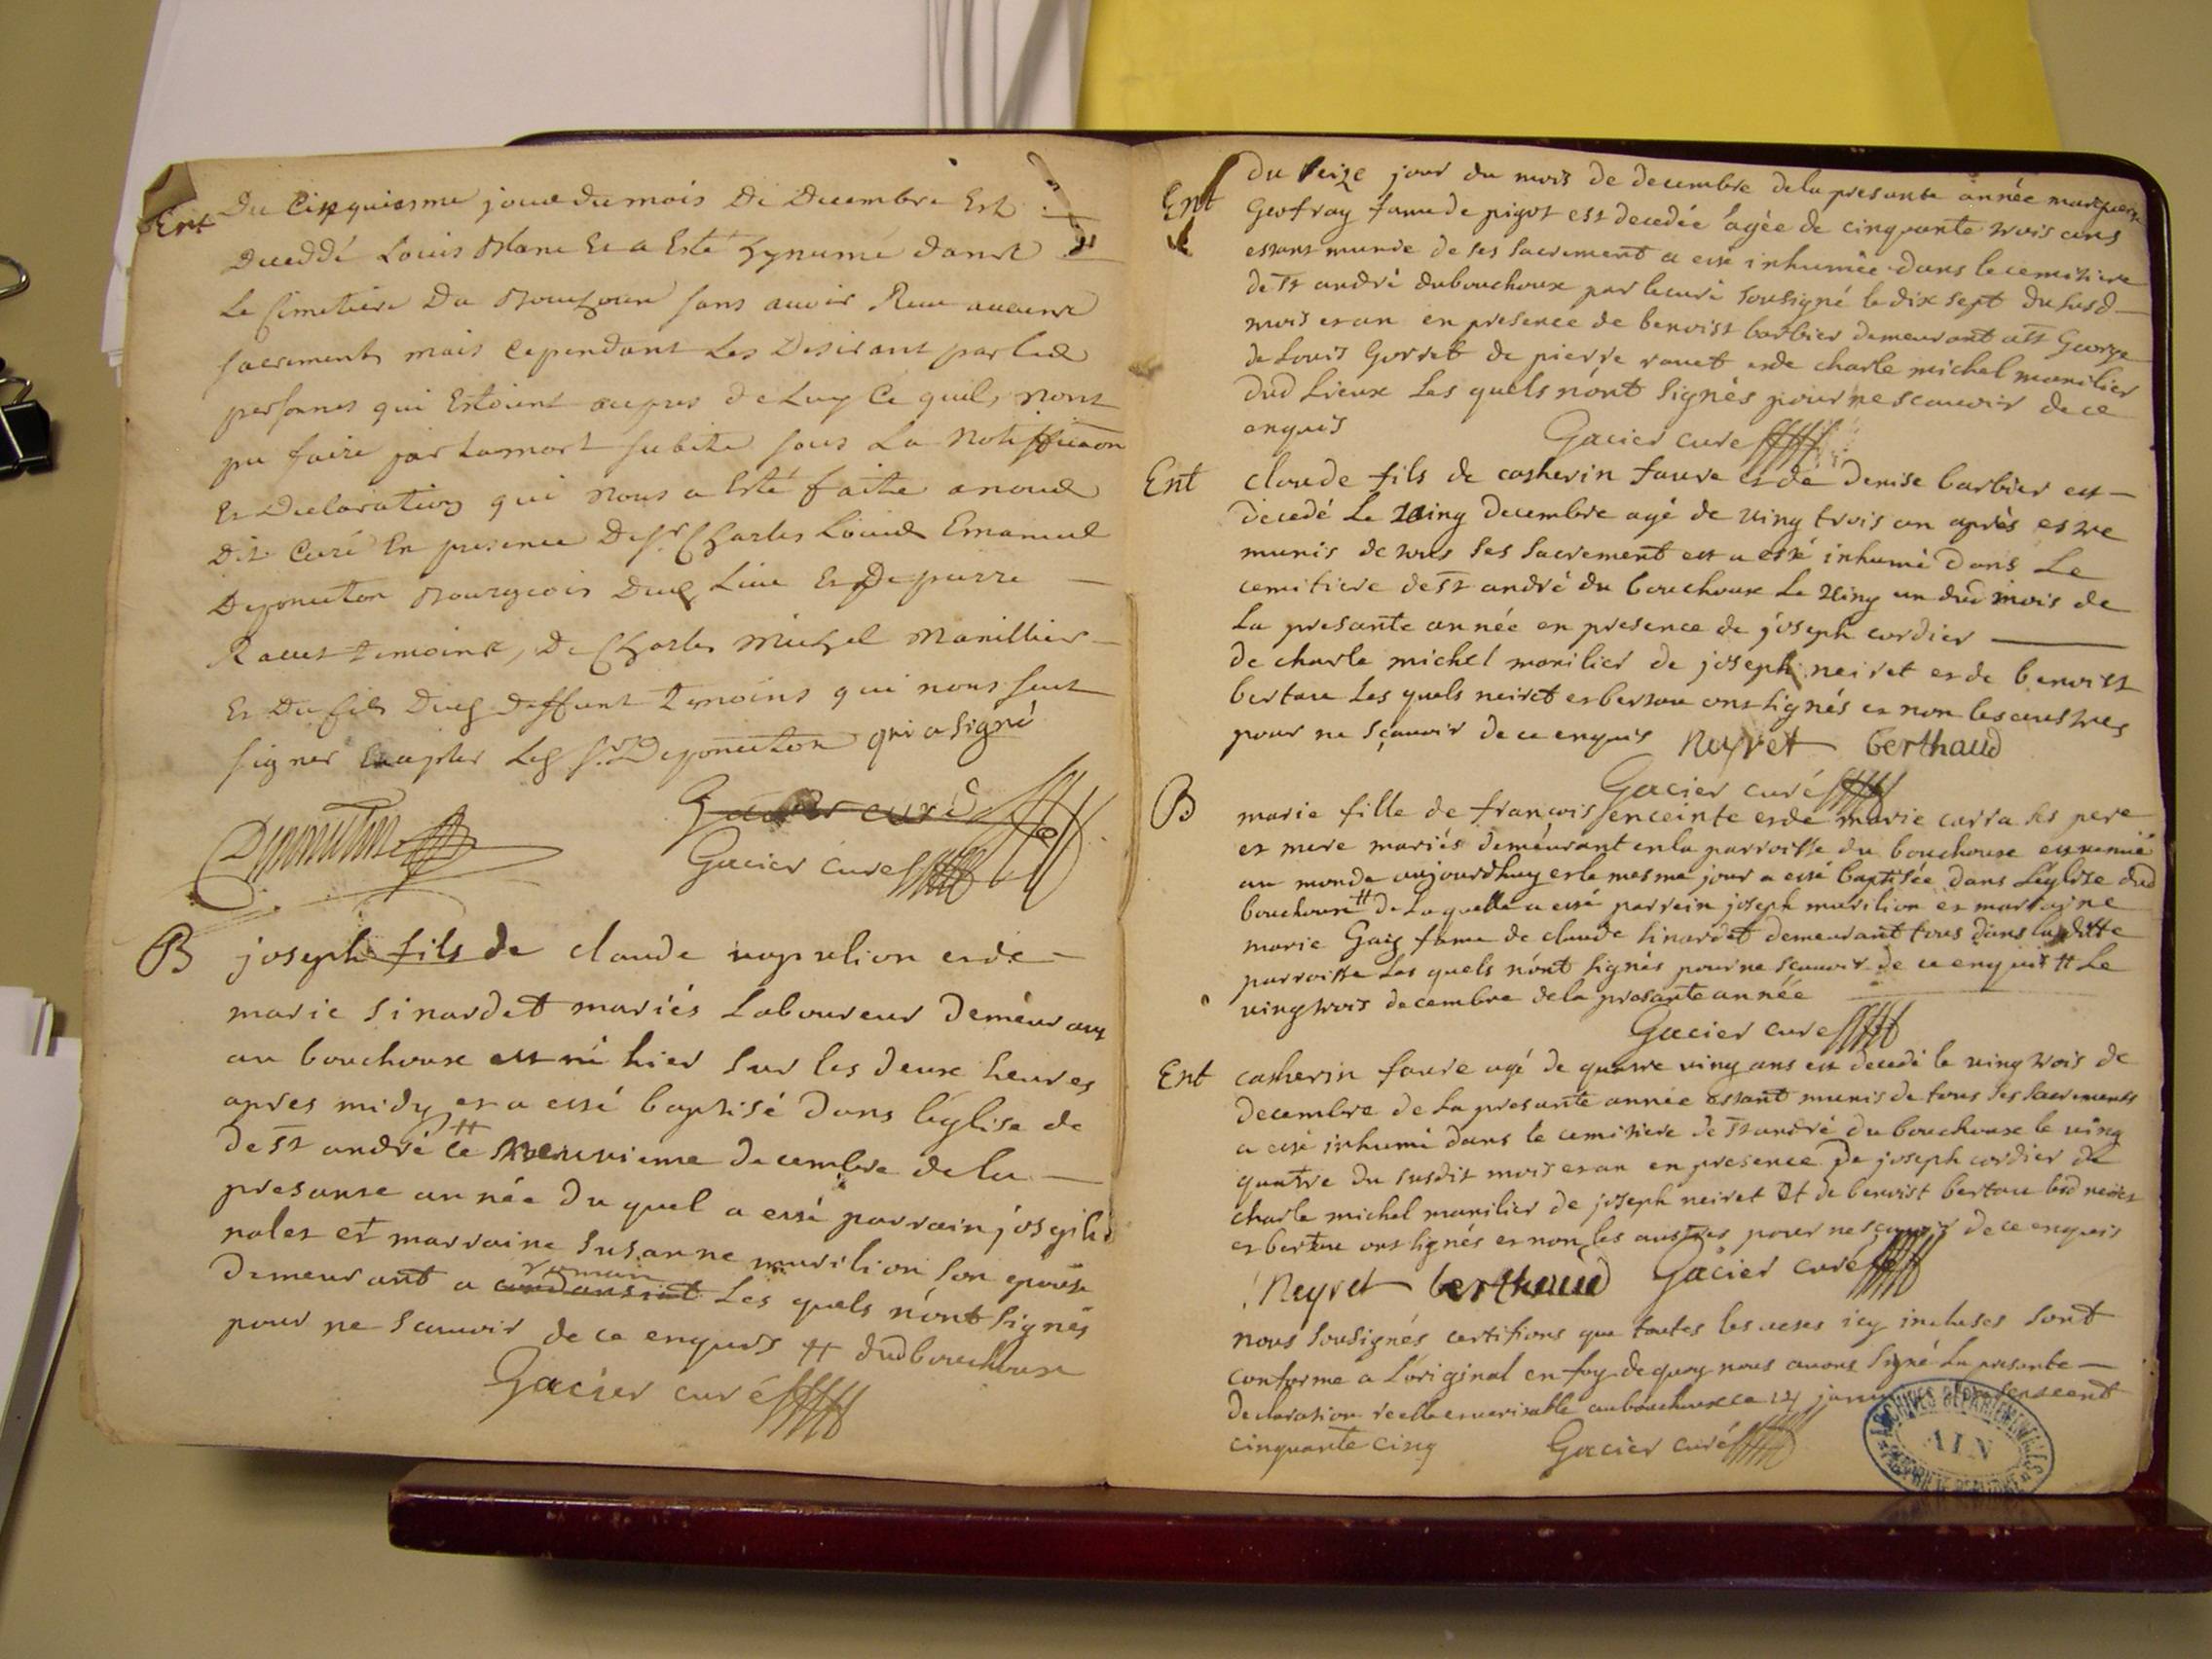 Ent
Du Cinquiesme jour du mois de Decembre Est
Deceddé Louis Blanc Et a Esté Hynumé dans
Le Cimetiere Du Bouchoux sans avoir Receu aucuns
sacrements mais Cependant Les Desirant par les
personnes qui Estoient aupres de Luy Ce quils nont
pu faire par La mort subite sous La
Et Declaration qui nous a Esté faitte a nous
Dit Curé En presence De Sr Charles Louis Emanuel
Deponcton Bourgeois Dud Lieu Et De pierre
Ravet temoins, De Charles Michel Manillier
Et Du fils Dud deffunt temoins qui nous sceut
signer Excepter Led Sr Deponcton qui a signé
Gacier curé
Gacier curé
B
joseph fils de claude et de
marie sinardet mariés Laboureur demeurant
au bouchoux est né hier sur les deux heures
apres midy et a esté baptisé dans léglise de
de st andré ce neuvieme decembre de la
presante année du quel a esté parrain joseph
et marraine susanne murilion son epouse
roman
demeurant a Les quels nónt signés
pour ne scavoir de ce enquis # dud bouchoux
Gacier curé
Ent
du seize jour du mois de decembre de la presante année marguerite
Geofray fame de pigot est decedée agée de cinquante trois ans
estant munie de ses sacrement a esté inhumée dans le cemitiere
de st andré du bouchoux par le curé sousigné le dix sept du susd
mois et an en presence de benoist barbier demeurant a st George
de Louis Gorret de pierre ravet et de charle michel manilier
dud Lieux Les quels nónt signés pour ne scavoir de ce
enquis
Gacier cure
Ent
claude fils de catherin faure et de denise barbier est
decedé Le ving decembre agé de ving trois an après estre
munis de tous ses sacrement est a esté inhumé dans Le
cemitiere de st andré du bouchoux Le ving un dud mois de
La presante année en presence de joseph cordier
de charle michel manilier de joseph neiret et de benoist
bertau Les quels neiret et bertau ont signés et non les austres
pour ne sçavoir de ce enquis Neyret berthaud
Gacier curé
B
marie fille de francois enceinte et de marie carra ses pere
et mere mariés demeurant en la parroisse du bouchoux est venüe
au monde aujourdhuy et le mesme jour a esté baptisée dans Léglise dud
bouchoux # de Laquelle a esté parrein joseph murilion et marraine
marie Gais fame de claude sinardet demeurant tous dans laditte
parroisse Les quels nónt signés pour ne scavoir de ce enquis # Le
ving trois decembre de la presante année
Gacier cure
Ent
catherin faure agé de quatre ving ans est decedé le ving trois de
decembre de La presante année estant munis de tous ses sacrements
a esté inhumé dans le cemitiere de st andré du bouchoux le ving
quattre du susdit mois et an en presence de joseph cordier de
charle michel manilier de joseph neiret Et de benoist bertau lesd neiret
et bertau ont signés et non les austres pour ne sçavoir de ce enquis
Neyret berthaud Gacier curé
nous sousignés certifions que toutes les actes icy incluses sont
conforme a Lóriginal en foy de quoy nous avons signé La presante
declaration reelle et veritable au bouchoux ce 14 janvier
cinquante cinq Gacier curé
ARCHIVES DÉPARTEMENTALES
AIN